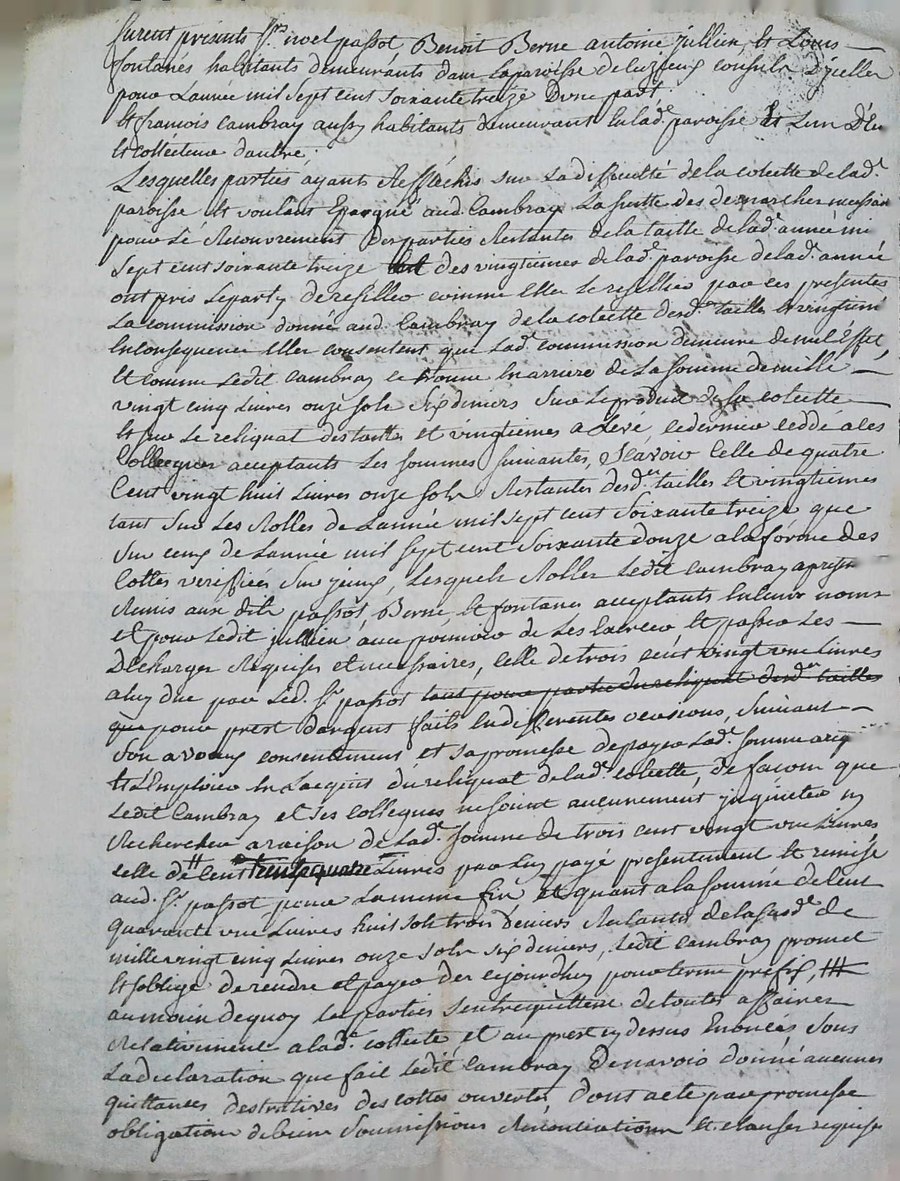 furent présents Srs noel passot, Benoit Berne antoine jullien, et Louis
fontanes habitants demeurants dans la paroisse de consuls
pour Lannée mil sept cent soixante treize Dune part
Et francois Cambray aussy habitants demeurant en lad. paroisse Et Lun D'Eux
Et collecteur dautre;
Lesquelles parties ayants Refléchis sur La difficulté de la colecte de lad.
paroisse Et voulant Epargné aud. Cambray La suitte des demarches
pour Le Recouvrement Des parties Restantes de la taille de lad. année mil
Sept cent soixante treize des vingtiemes de lad. paroisse de lad. année
ont pris Le party de resillier comme Elles Le resillier par ces presentes
La commission donnée aud. Cambray de la colecte desd. tailles Et vingtiemes
En consequence Elles consentent que Lad. commission demeure de nul Effet,
Et comme Ledit Cambray se trouve En arriere de La somme de mille
vingt cinq Livres onze sols six deniers sur Le produit de la colecte
Et sur Le reliquat des tailles et vingtiemes a Levé, ce dernier cedde a ses
Collegues acceptants Les sommes suivantes, Scavoir Celle de quatre
Cent vingt huit Livres onze sols Restantes desd. tailles Et vingtiemes
tant sur Les Rolles de Lannée mil sept cent soixante treize que
sur ceux de Lannée mil sept cent soixante douze a la forme des
Cottes veriffiées sur jceux, Lesquels Rolles Ledit Cambray a
Remis aux dits passot, Berne, Et fontanes acceptants En leurs noms
et pour Ledit jullien avec pouvoir de Les Et passer Les
Décharges Requises et necessaires, celle de trois cent vingt une Livres
a luy due par Led. Sr. passot tant pour partie du reliquat desd. tailles
que pour prest Dargent faits En differentes ocasions, suivant
Son aveu consentement et sa promesse de payer Lad. somme
Et L'Employer En Lacquit du reliquat de lad. colecte, de facon que
Ledit Cambray et ses collegues ne soient aucunement jnquietés ny
Recherchés a raison de Lad. somme de trois cent vingt une Livres,
celle de Cent trente quatre Livres par Luy payé presentement Et remise
aud. Sr. passot pour La meme fin Et quant a la somme de Cent
quarante une Livres huit sols trois deniers Restante de la susd. de
mille vingt cinq Livres onze sols six deniers, Ledit Cambray promet
Et soblige de rendre et payer des ce jourdhuy pour terme prefix,
au moien de quoy Les parties s'entrequittent de toutes affaires
Relativement a lad. collecte et au prest cy dessus Enoncés sous
La declaration que fait Ledit Cambray De n'avoir donné aucunes
quittances destructives des cottes ouvertes dont acte par promesse
obligation de biens Soumissions Renonciations Et clauses requises